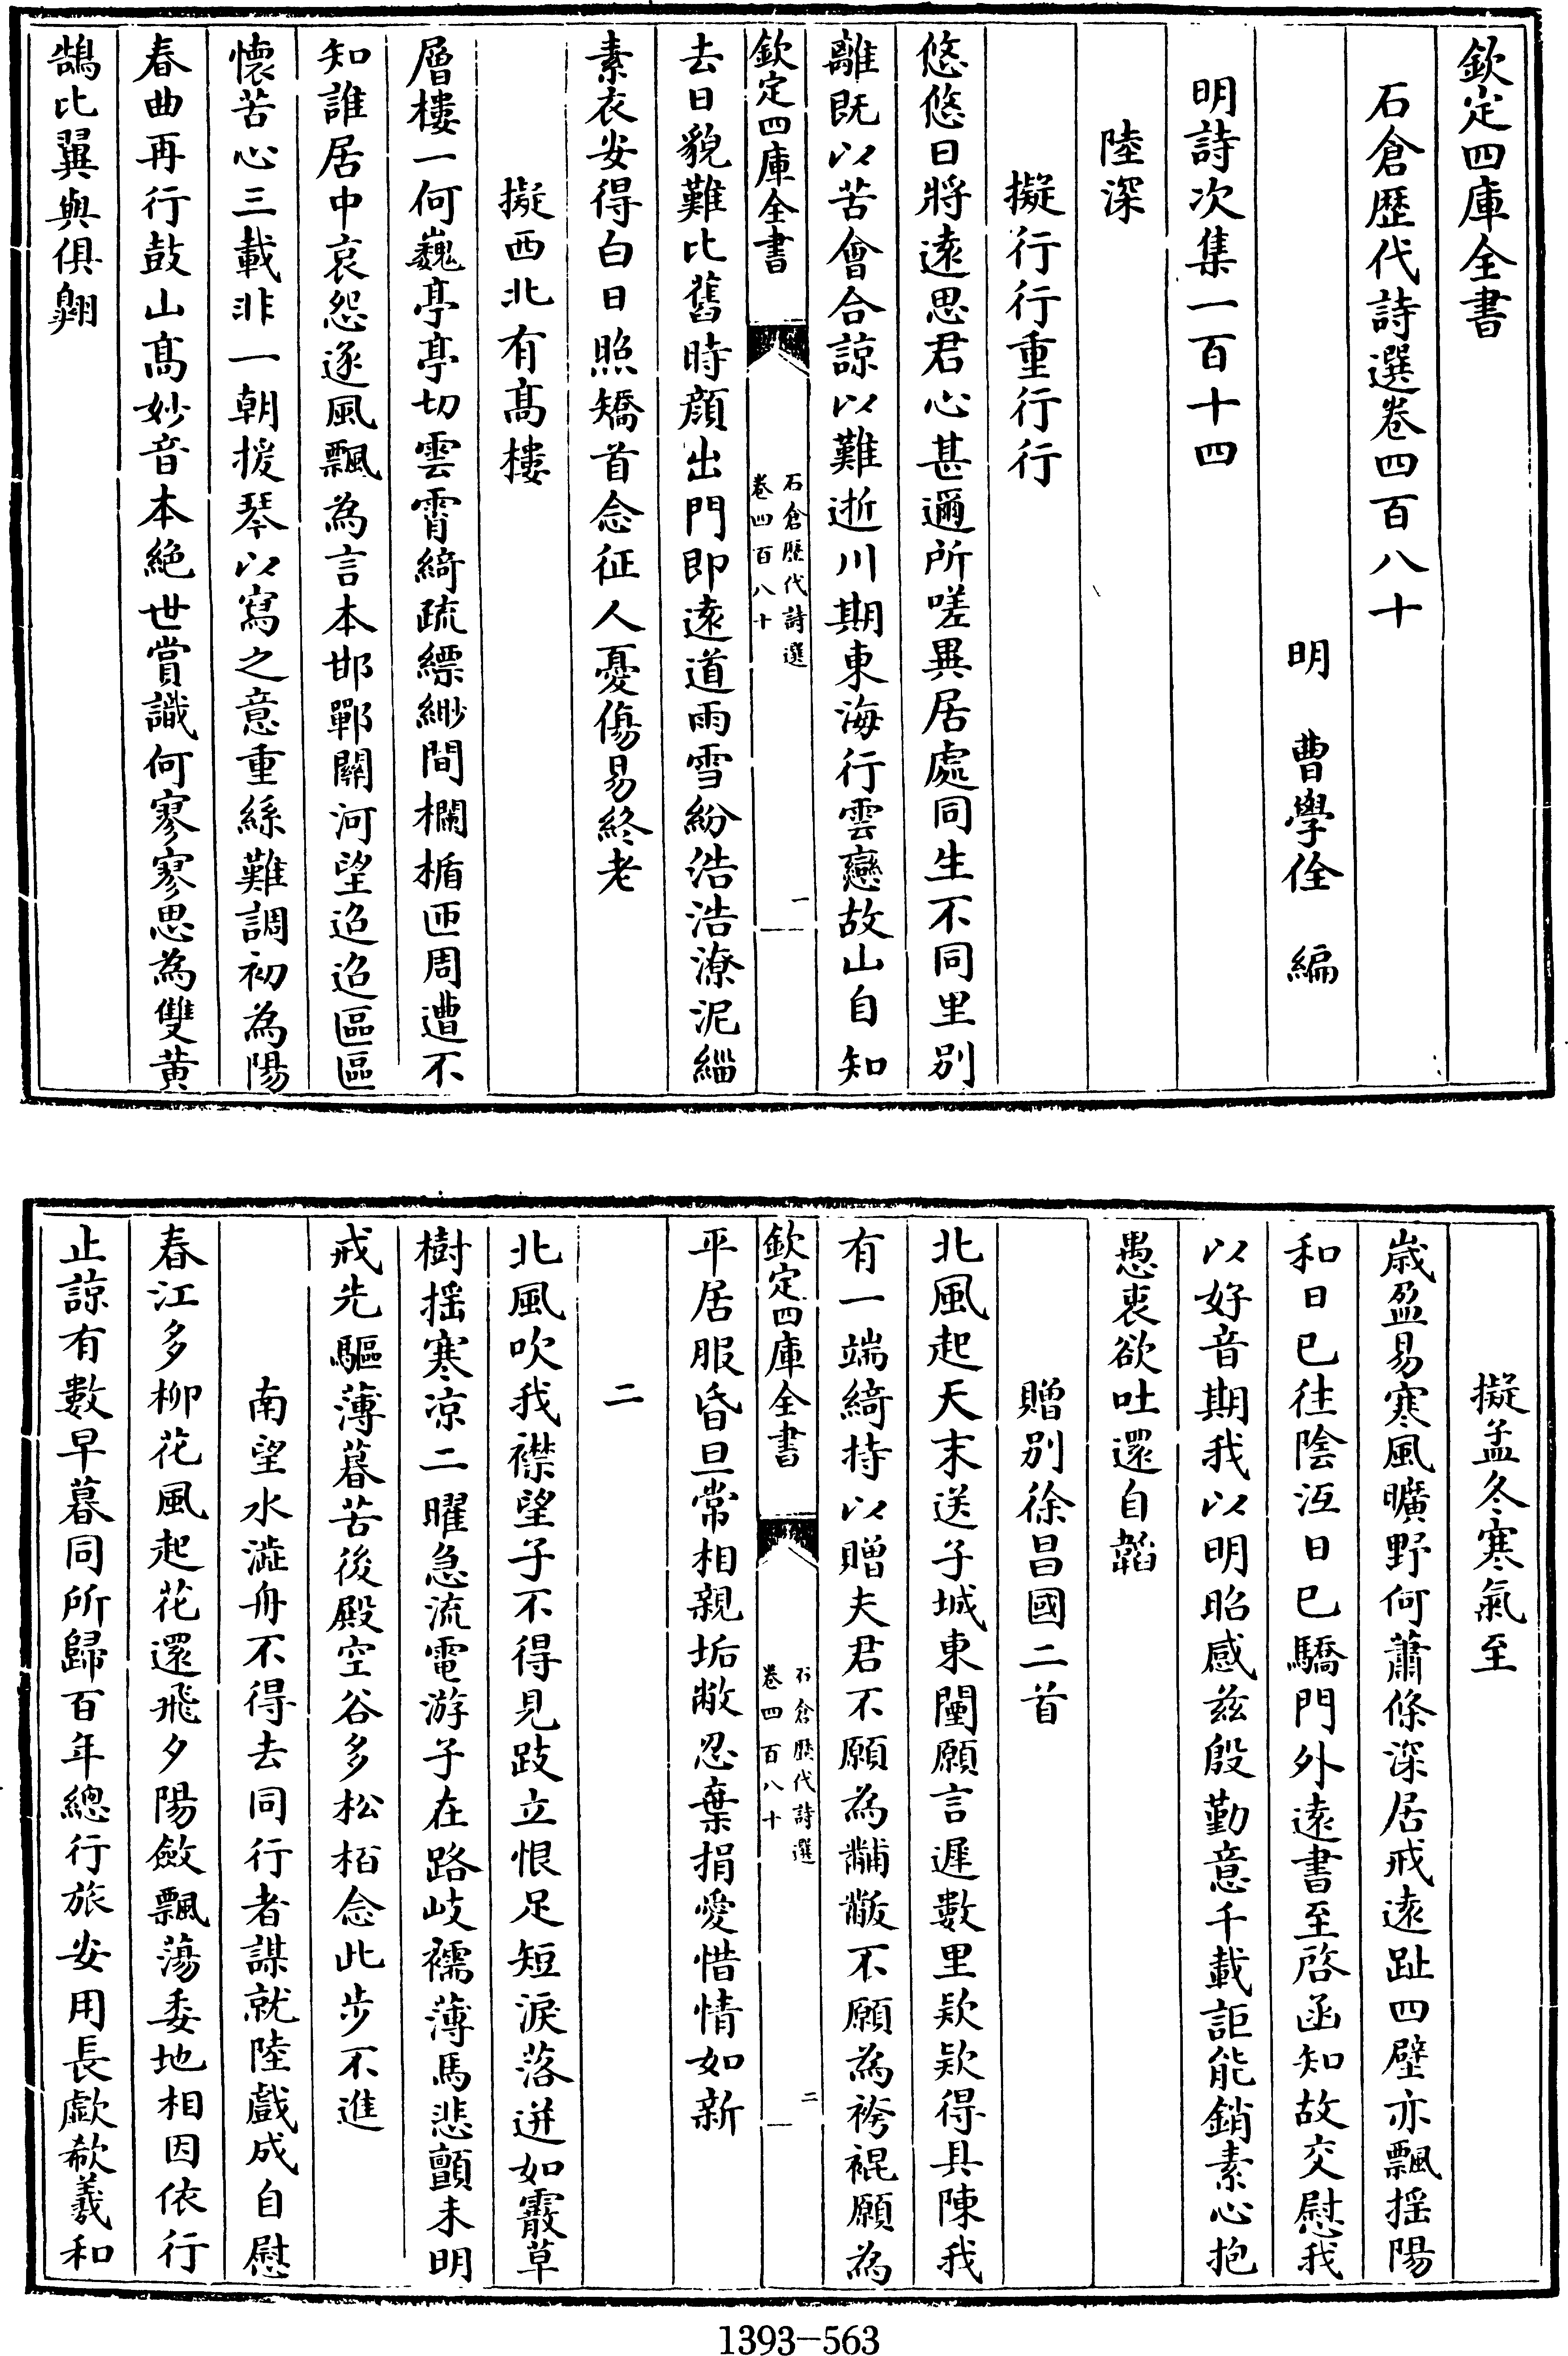 欽定四庫全書
石倉歴代詩選卷四百八十
明　曹學佺　編
明詩次集一百十四
陸深
擬行行重行行
悠悠日將遠思君心甚邇所嗟異居處同生不同里别
離既以苦會合諒以難逝川期東海行雲戀故山自知
欽定四庫全書
石倉歴代詩選
卷四百八十
一
去日貌難比舊時顔出門即遠道雨雪紛浩浩潦泥緇
素衣安得白日照矯首念征人憂傷易終老
擬西北有髙樓
層樓一何巍亭亭切雲霄綺疏縹緲間欄楯匝周遭不
知誰居中哀怨逐風飄為言本邯鄲關河望迢迢區區
懷苦心三載非一朝援琴以寫之意重絲難調初為陽
春曲再行鼓山髙妙音本絶世賞識何寥寥思為雙黄
鵠比翼與俱翺
擬孟冬寒氣至
歳盈易寒風曠野何蕭條深居戒遠趾四壁亦飄揺陽
和日已往陰沍日已驕門外遠書至啓函知故交慰我
以好音期我以明昭感兹殷勤意千載詎能銷素心抱
愚衷欲吐還自韜
贈别徐昌國二首
北風起天末送子城東闉願言遲數里欵欵得具陳我
有一端綺持以贈夫君不願為黼黻不願為袴裩願為
欽定四庫全書
石倉歴代詩選
卷四百八十
二
平居服昏旦常相親垢敝忍棄捐愛惜情如新
二
北風吹我襟望子不得見跂立恨足短淚落迸如霰草
樹揺寒凉二曜急流電游子在路岐襦薄馬悲顫未明
戒先驅薄暮苦後殿空谷多松栢念此步不進
南望水澁舟不得去同行者謀就陸戲成自慰
春江多柳花風起花還飛夕陽斂飄蕩委地相因依行
止諒有數早暮同所歸百年總行旅安用長歔欷羲和
1393-563